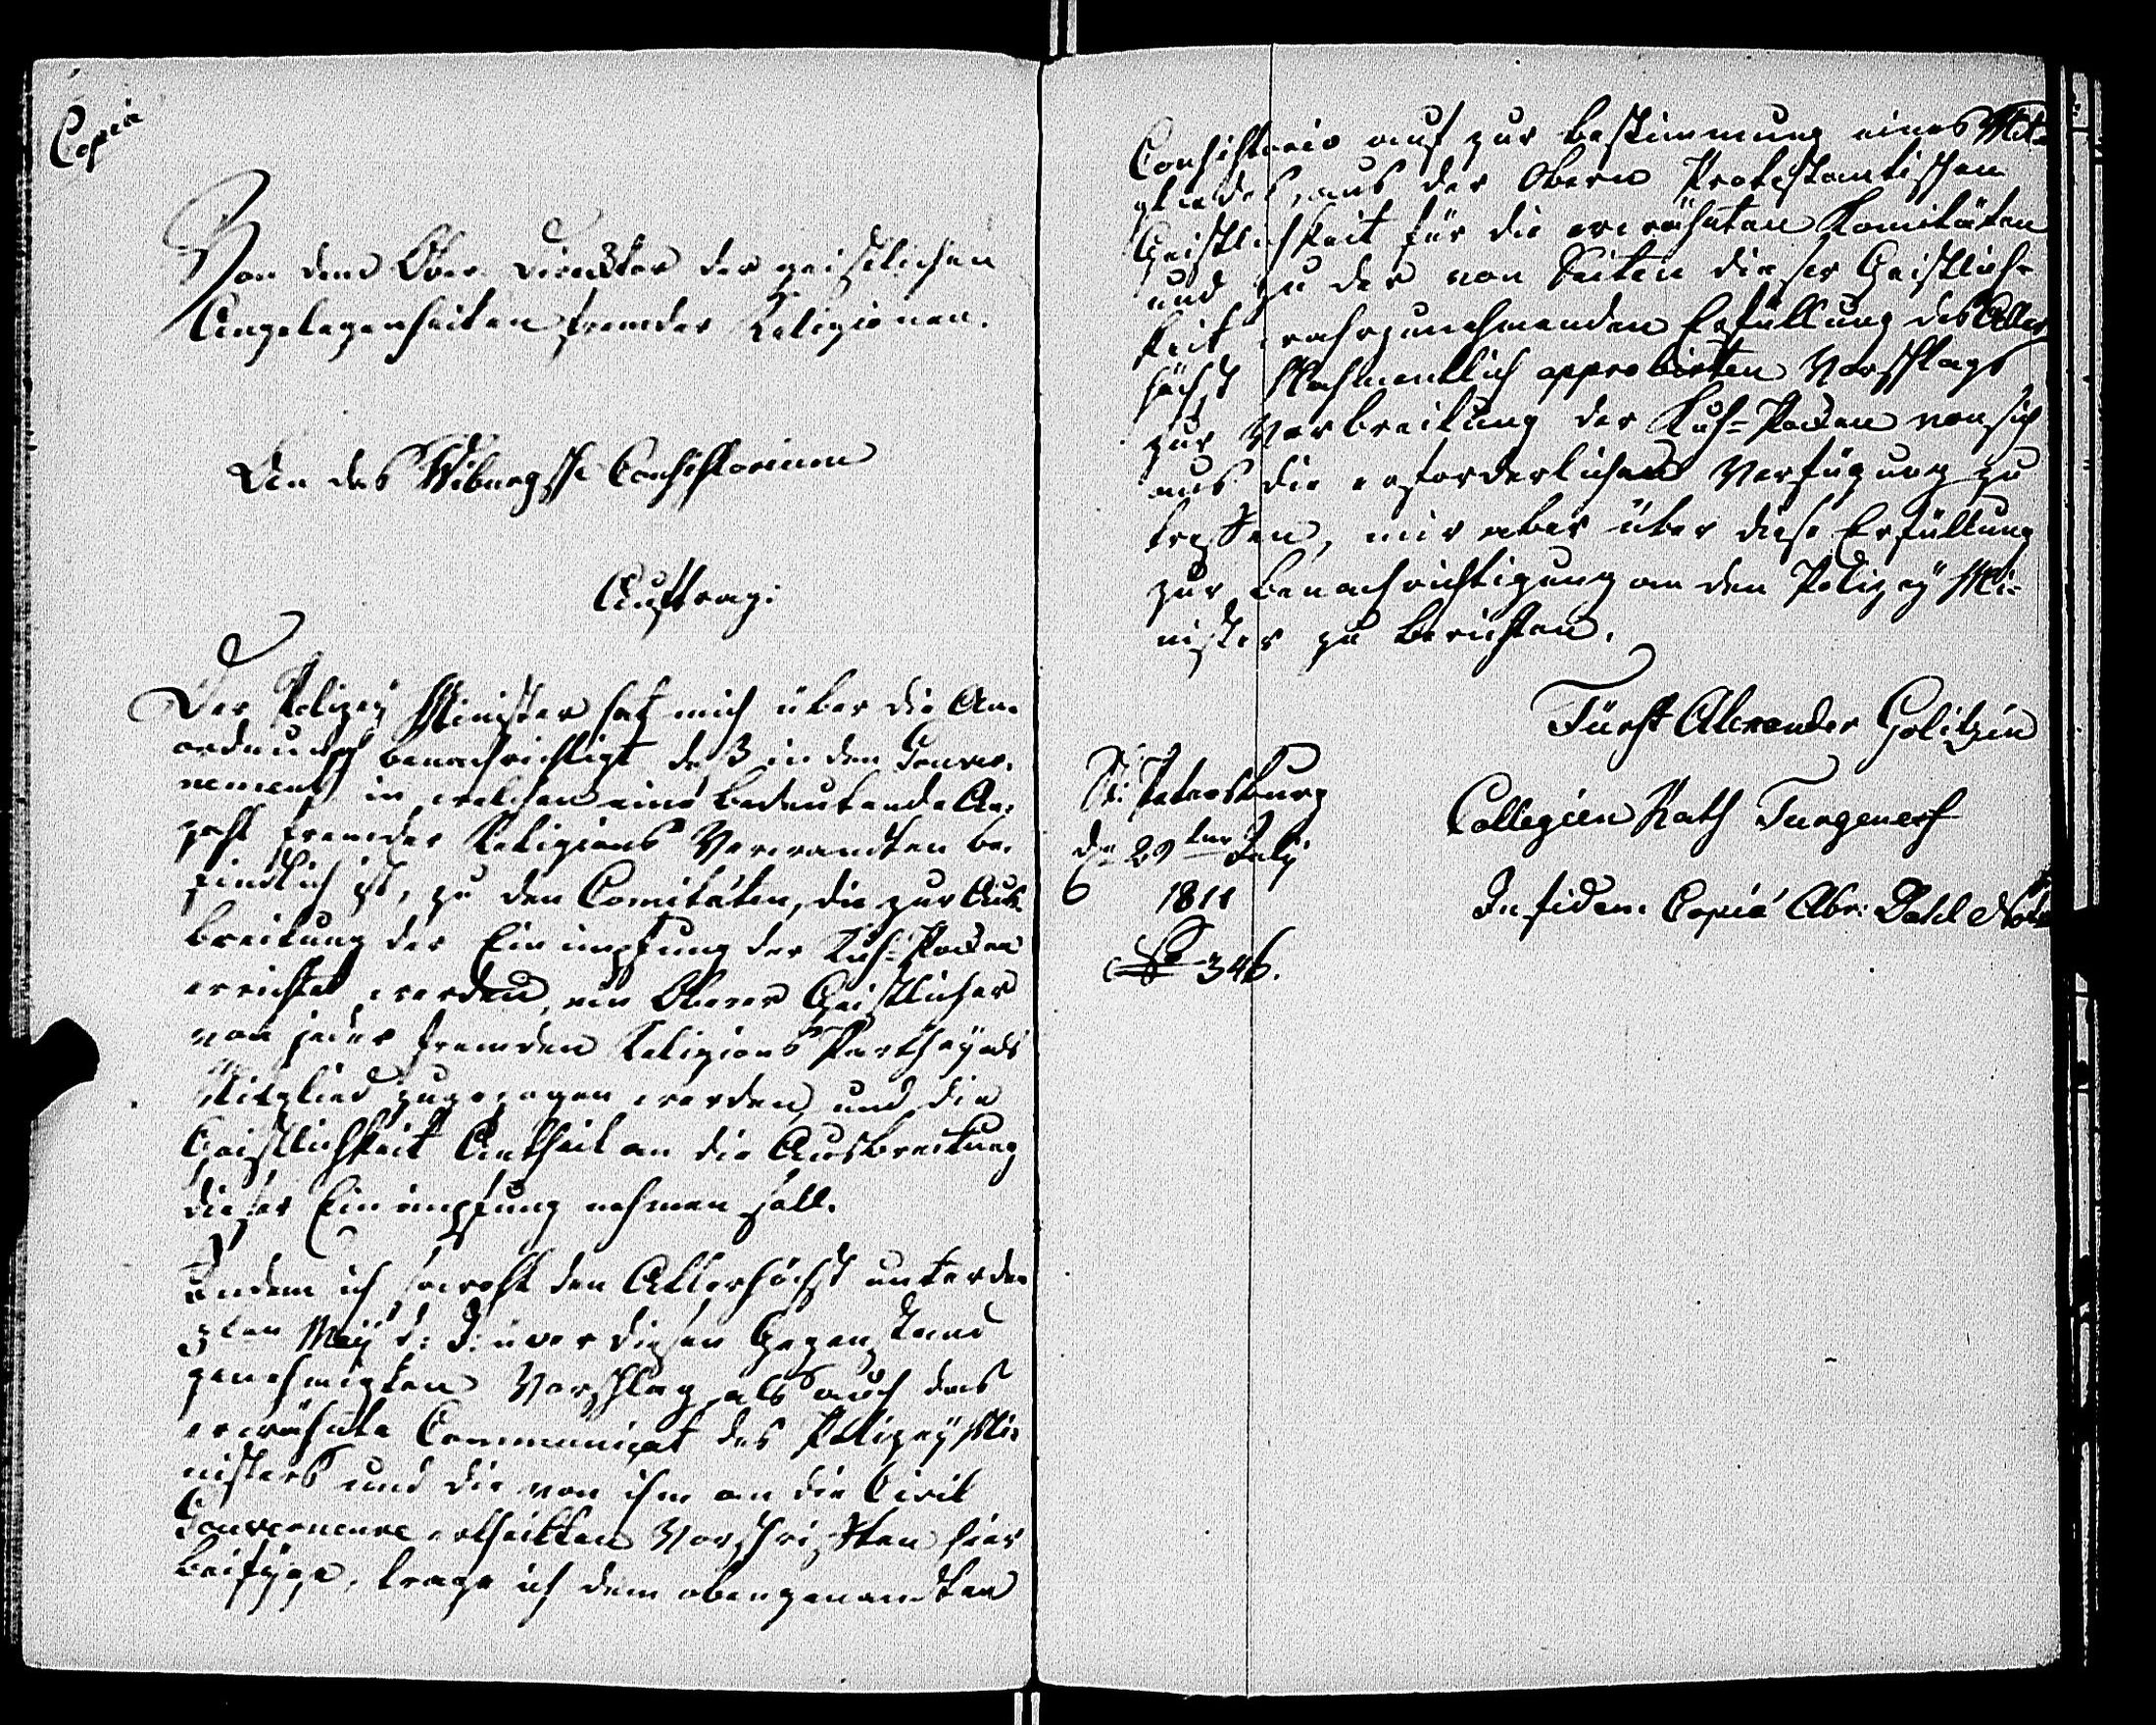 Copia
Von dem Ober Director der geistlichen
Angelegenheiten fremder Religionen.
An das Wiburgsche Consistorium
Auftrag:
Der Polizey Minister hat mich über die An-
ordnung benachrichtigt daß in den Gouver-
nements in welchen eine bedeutende An-
zahl fremder Religions Verwandten be-
findlich ist, zu den Comitäten, die zur Aus-
breitung der Einimpfung der Kuh-Pocken
errichtet werden, ein Oberer Geistlicher
von jeder fremden Religions Parthey als
Mitglied zugezogen werden, und die
Geistlichkeit Antheil an die Ausbreitung
dieser Einimpfung nehmen soll.
Indem ich sowohl den Allerhöchst unter den
3ten Maÿ d: J: über diesen Gegenstand
genehmigten Vorschlag als auch das
erwähnte Communicat des Polizey Mi-
nisters und die von ihm an die Civil
Gouverneure ertheilten Vorschriften hier
beifüge, trage ich dem obengenandten
Consistorio auf zur Bestimmung eines Mit-
gliedes, aus der Obern Protestantischen
Geistlichkeit für die erwähnten Komitäten
und zu der von Seiten dieser Geistlich-
keit wahrzunehmenden Erfüllung des Aller-
höchst Nahmentlich approbirten Vorschlags
zur Verbreitung der Kuh-Pocken von sich
aus die erforderlichen Verfügung zu
treffen, mir aber über diese Erfüllung
zur Benachrichtigung an den Polizey Mi-
nister zu berichten.
Fürst Alexander Golitzin
St: Petersburg
Collegien Rath Turgeneff
d 29ten July
1811
In fidem Copiæ Abr: Dahl Not:
No 346.